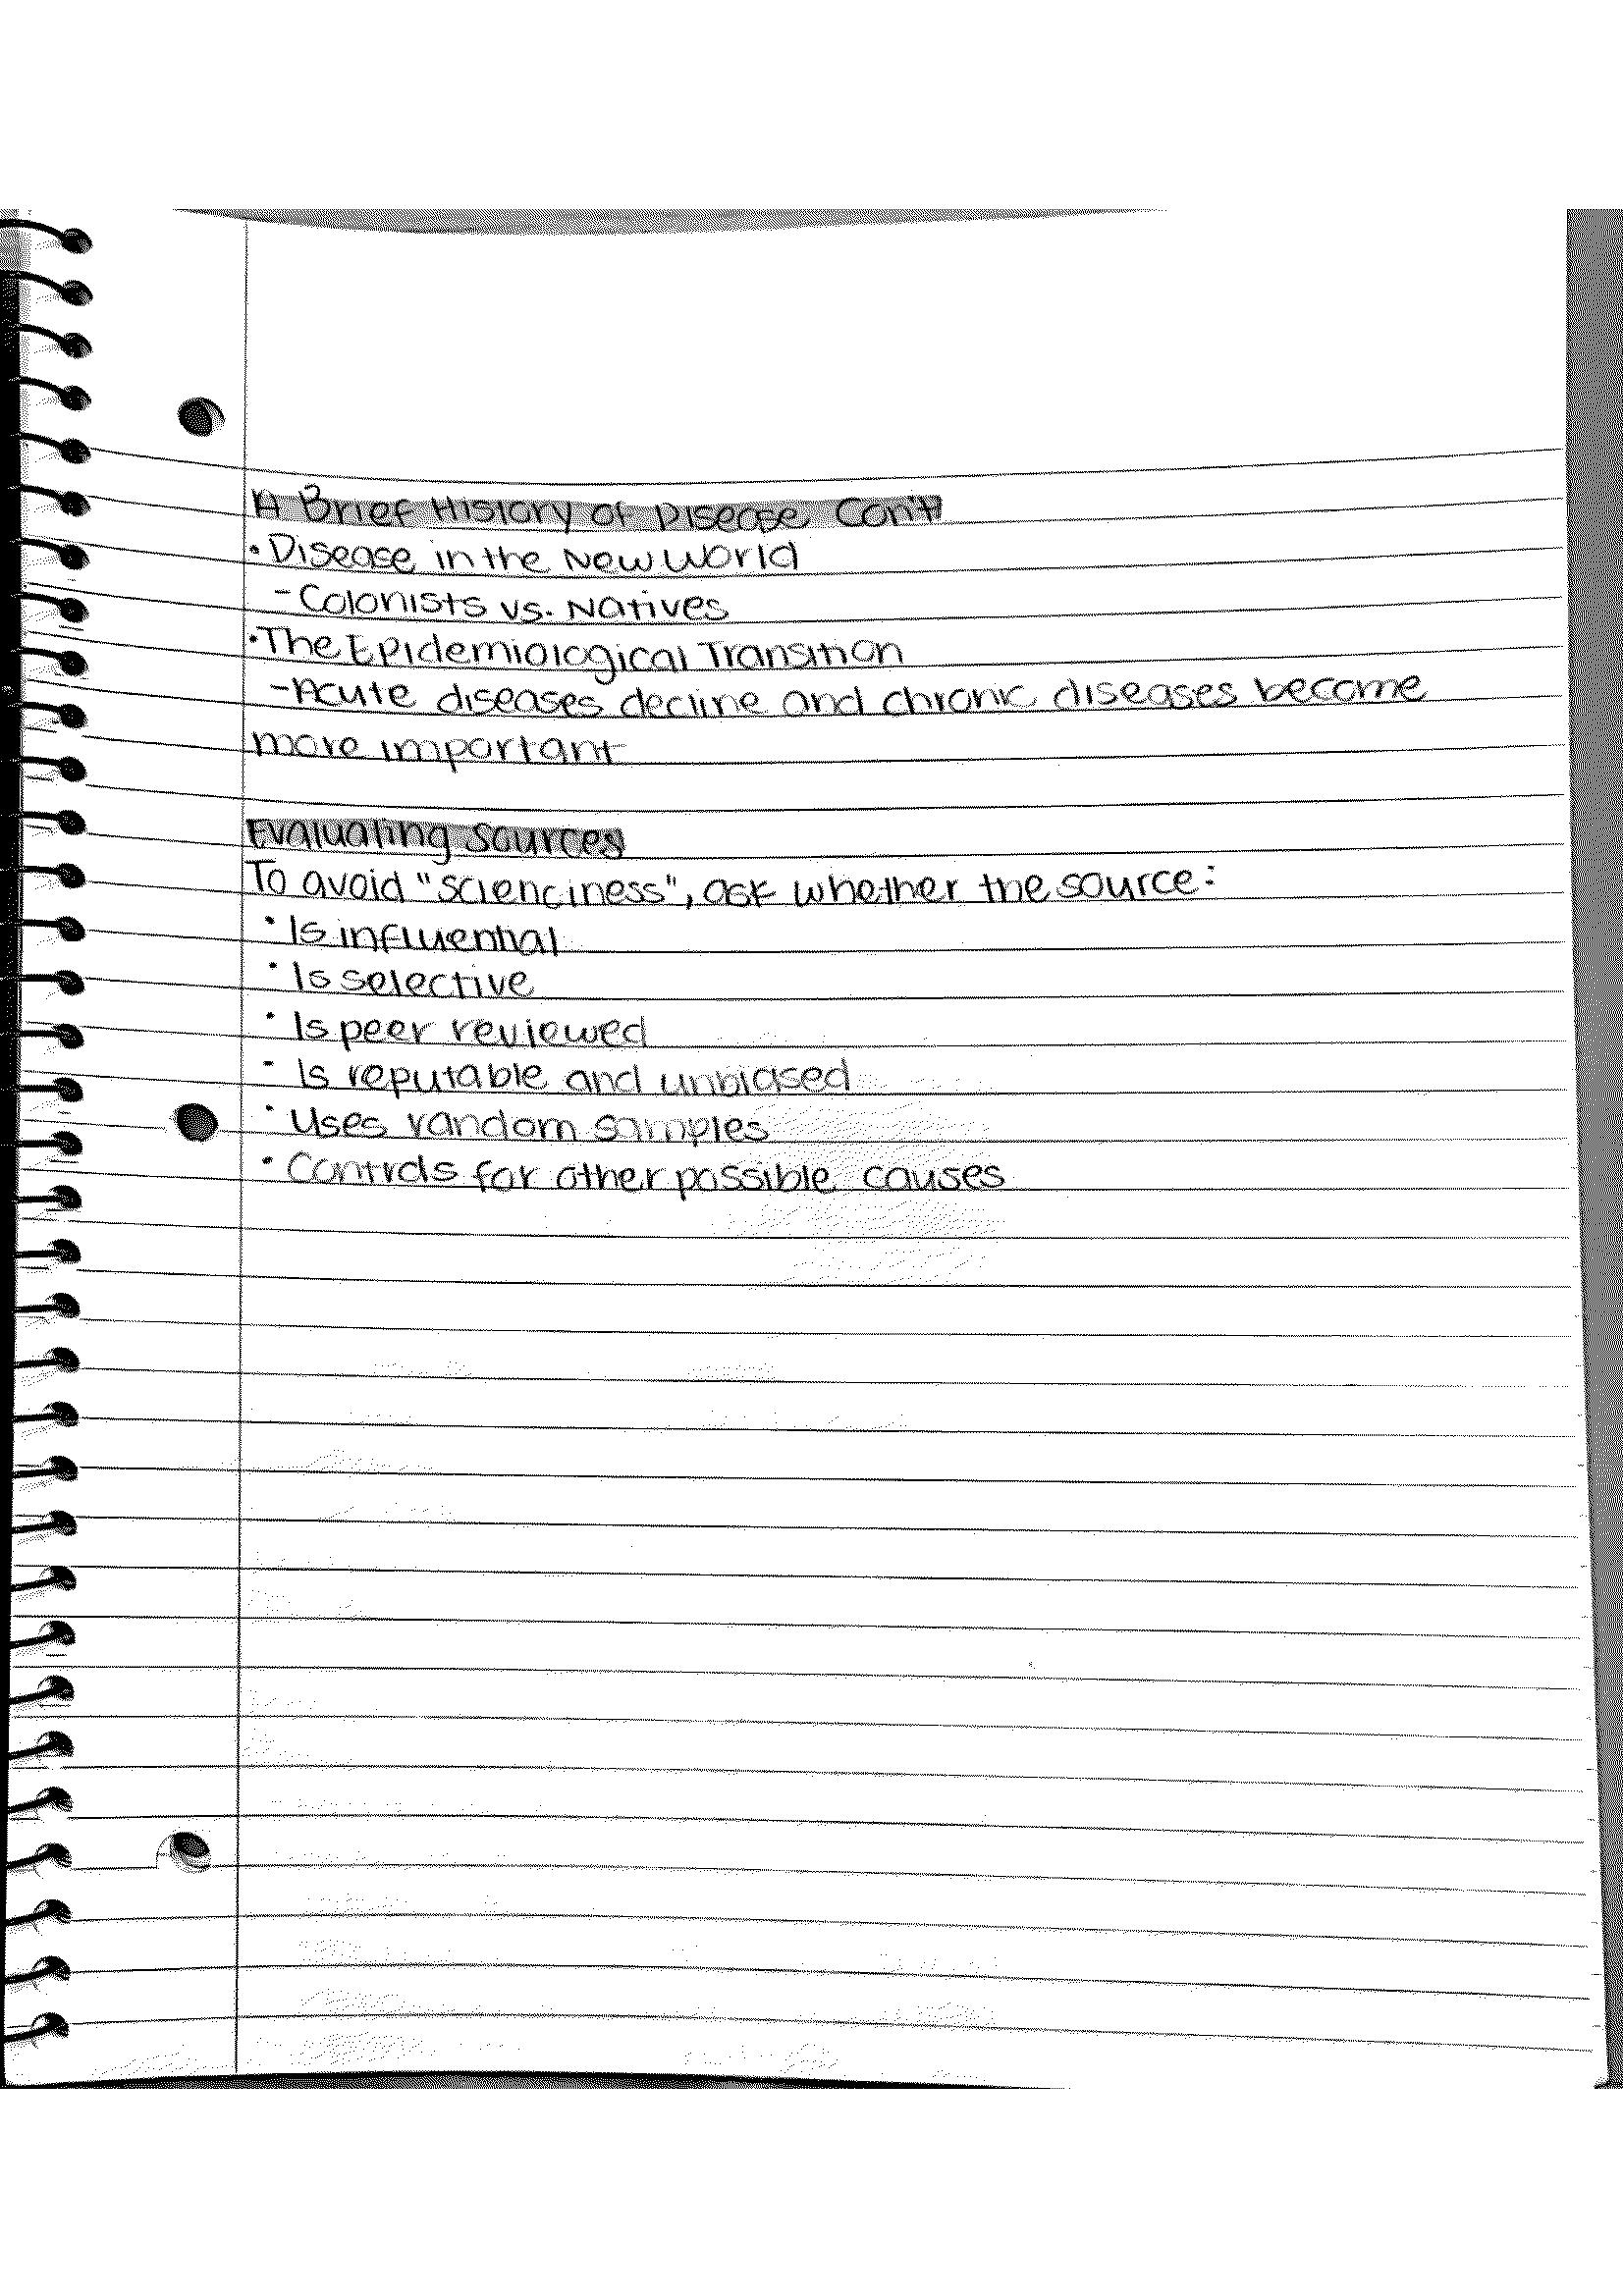 A Brief History of Disease Con't
• Disease in the New World
- Colonists vs. Natives
• The Epidemiological Transition
- Acute diseases decline and chronic diseases become
more important
Evaluating Sources
To avoid "scienciness", ask whether the source:
• Is influential
• Is selective
• Is peer reviewed
• Is reputable and unbiased
• Uses random samples
• Controls for other possible causes